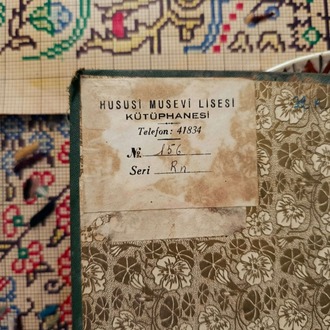 HUSUSİ MUSEVİ LİSESİ
KÜTÜPHANESİ
Telefon: 41834
№ 156
Seri Rn